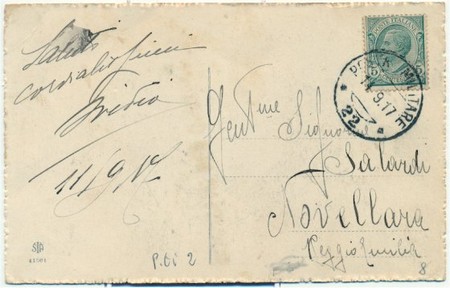 Saluti
cordialissimi
11/9/17
POSTE ITALIANE
POSTA MILITARE
9.17
22
Gent.me Signor
Salardi
Novellara
Reggio Emilia
P.ti 2
8